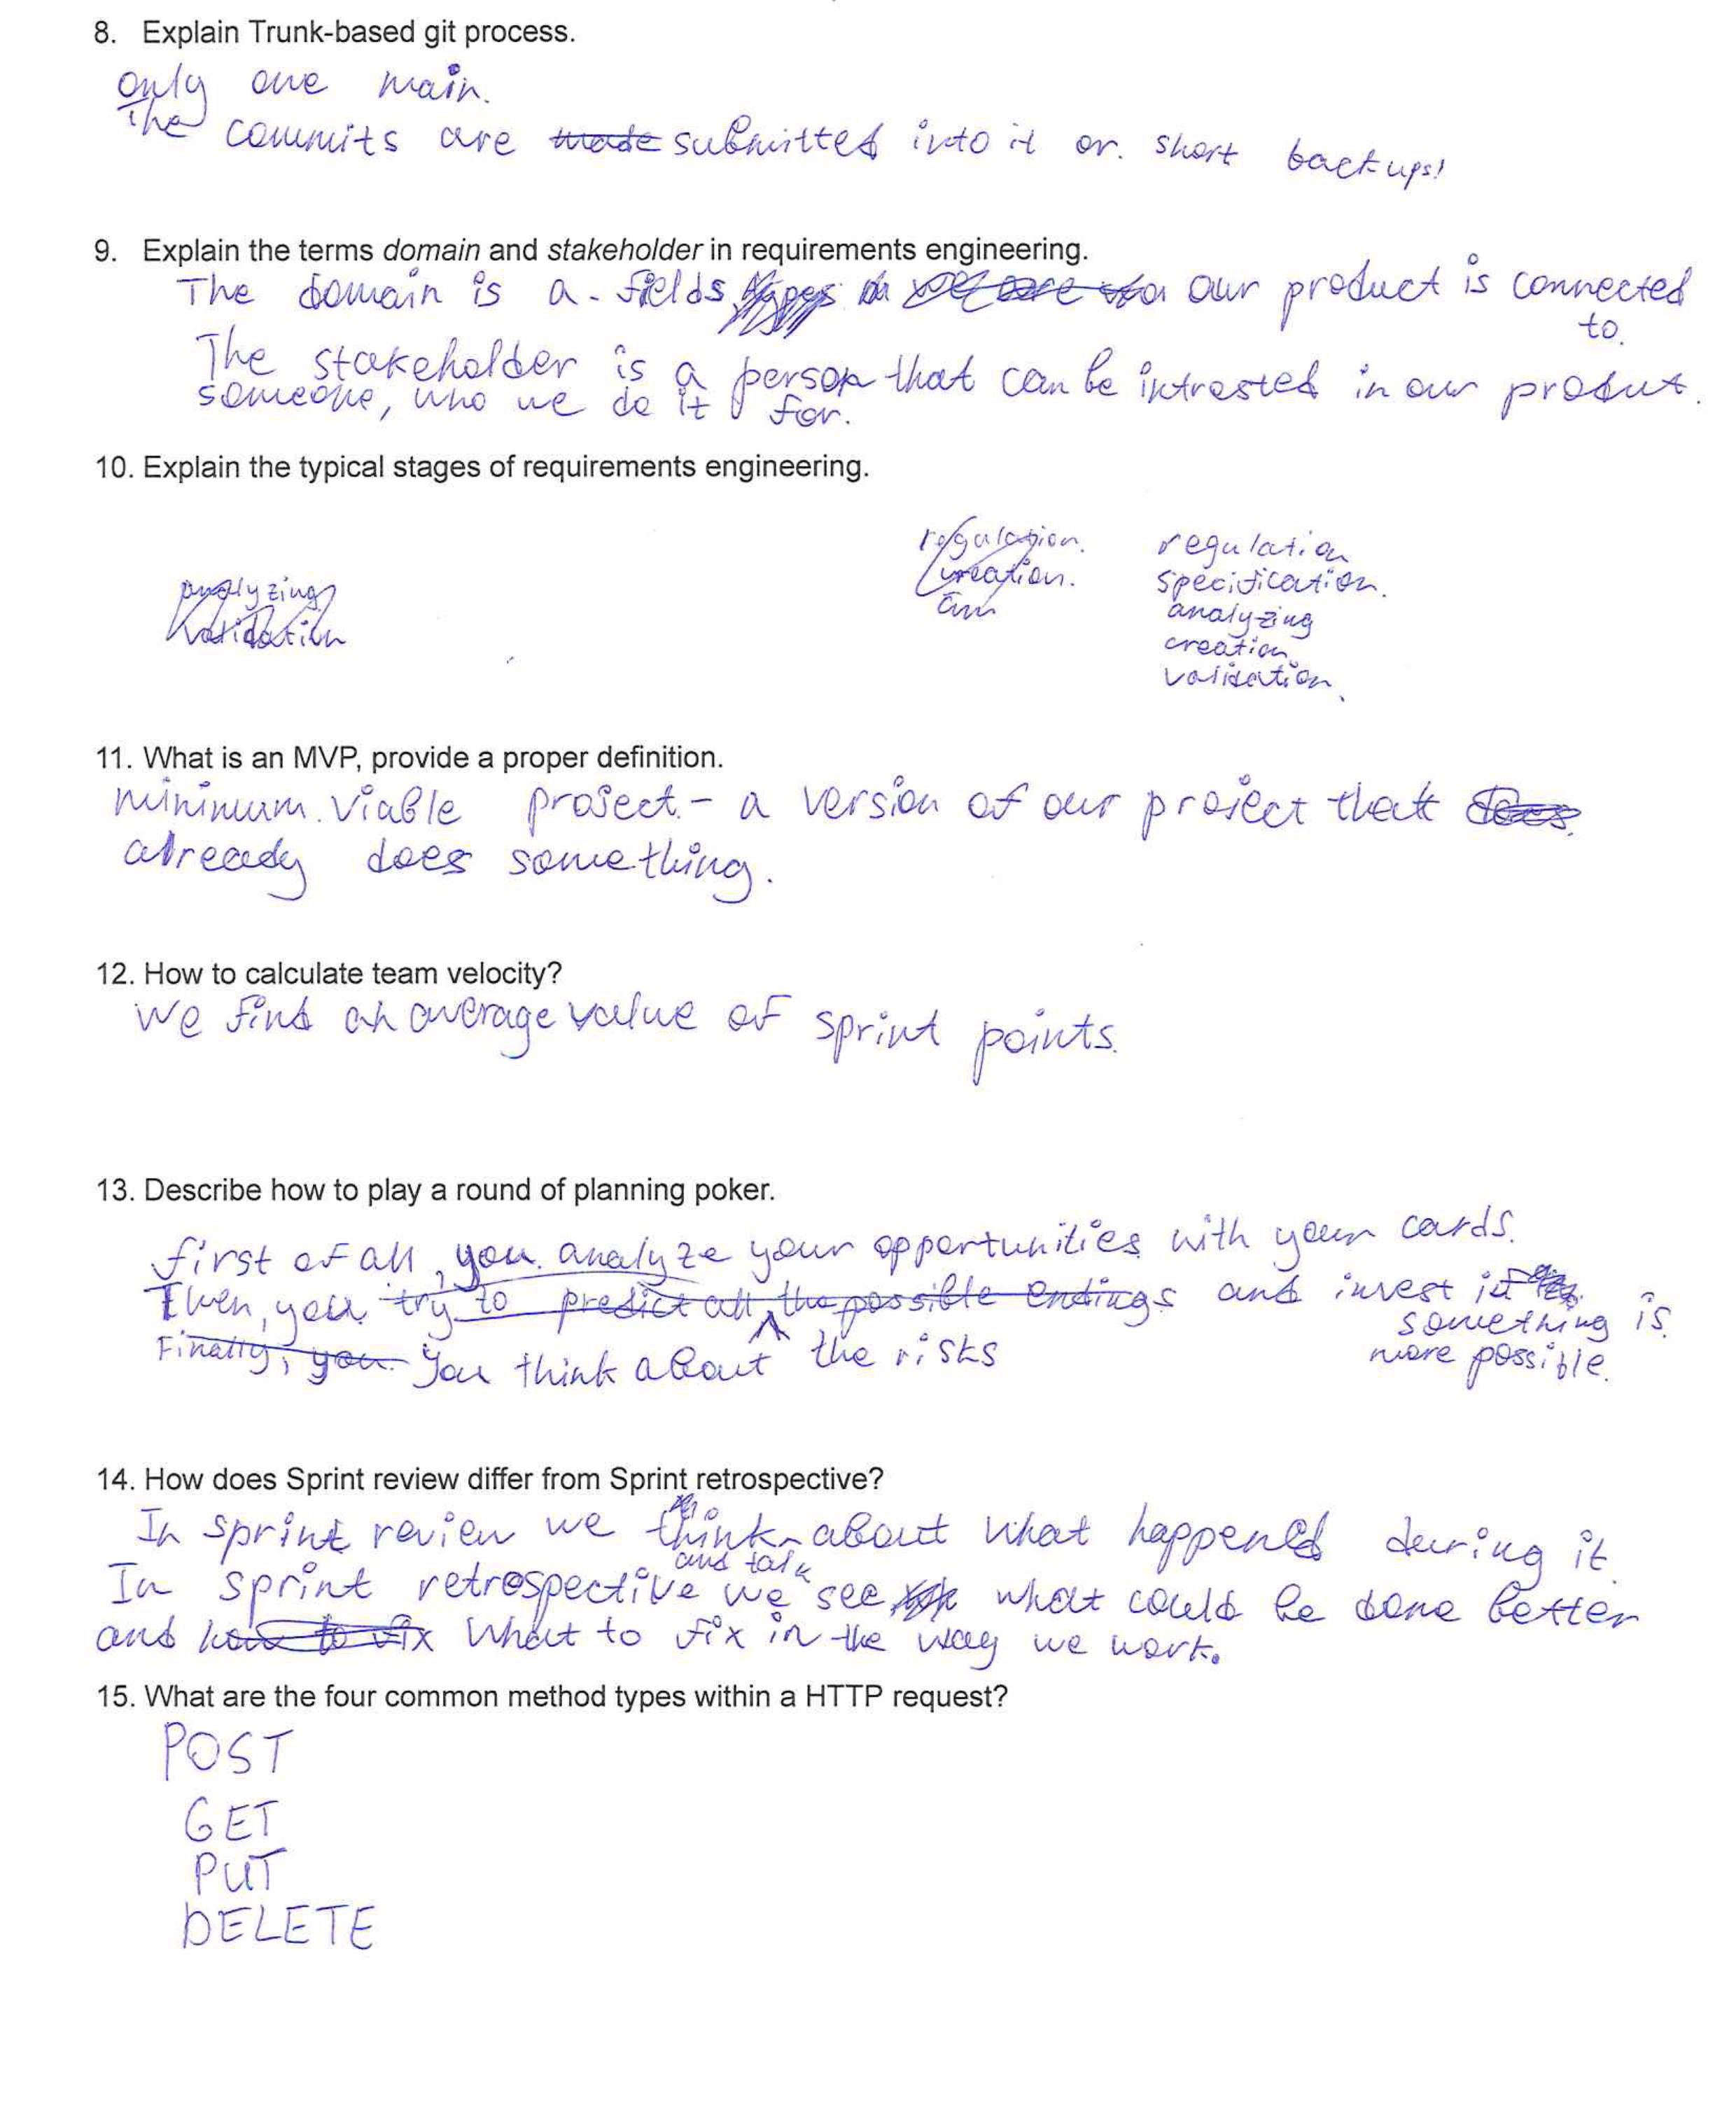 8. Explain Trunk-based git process.
only one main.
The commits are made submitted into it or. short backups!
9. Explain the terms domain and stakeholder in requirements engineering.
The domain is a fields our product is connected
to.
The stakeholder is a person that can be intrested in our produt.
someone, who we do it for.
10. Explain the typical stages of requirements engineering.
regulation.
creation.
an
analyzing
validation
regulation
specification.
analyzing
creation
validation.
11. What is an MVP, provide a proper definition.
minimum. viable project - a version of our project that does
already does something.
12. How to calculate team velocity?
We find an average value of sprint points.
13. Describe how to play a round of planning poker.
first of all, you analyze your opportunities with your cards.
Then, you try to predict all the possible endings and invest if
something is.
more possible.
Finally, you You think about the risks
14. How does Sprint review differ from Sprint retrospective?
In sprint review we think about what happened during it
and talk
In sprint retrospective we see what could be done better
and how to fix what to fix in the way we work.
15. What are the four common method types within a HTTP request?
POST
GET
PUT
DELETE